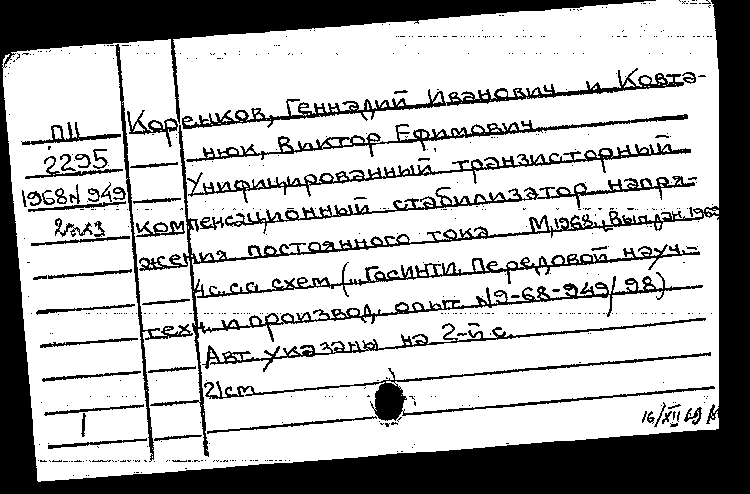 Кореньков, Геннадий Иванович и Ковта-
П11
нюк, Виктор Ефимович
2295
Унифицированный транзисторный
1968 N 949
компенсационный стабилизатор напря-
жения постоянного тока М, 1968, Вып.дан. 1969
4 с. со схем. („ГОСИНТИ. Передовой науч.-
техн. и производ. опыт N 9-68-949/98)
Авт. указаны на 2-й с.
21 cm
1
16/XII 69